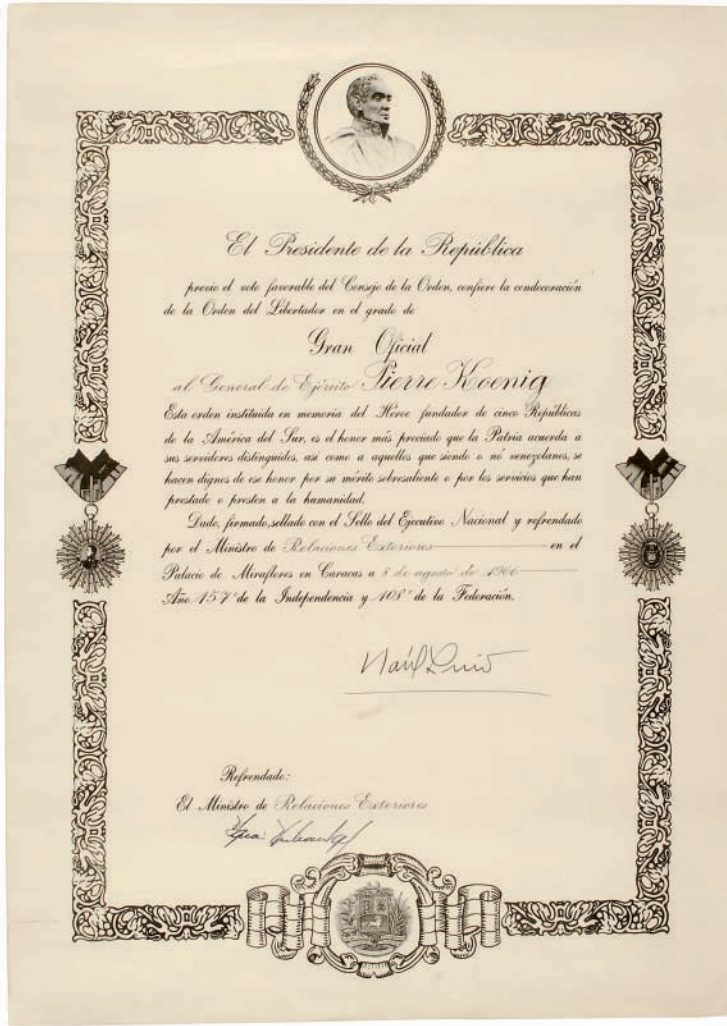 El Presidente de la República
previo el voto favorable del Consejo de la Orden, confiere la condecoración
de la Orden del Libertador en el grado de
Gran Oficial
al General de Ejército Pierre Koenig
Esta orden instituida en memoria del Héroe fundador de cinco Repúblicas
de la América del Sur, es el honor más preciado que la Patria acuerda a
sus servidores distinguidos, así como a aquellos que siendo o nó venezolanos, se
hacen dignos de ese honor por su mérito sobresaliente o por los servicios que han
prestado o presten a la humanidad.
Dado, firmado, sellado con el Sello del Ejecutivo Nacional y refrendado
por el Ministro de Relaciones Exteriores en el
Palacio de Miraflores en Caracas a 8 de agosto de 1966
Año 157° de la Independencia y 108° de la Federación.
Refrendado:
El Ministro de Relaciones Exteriores